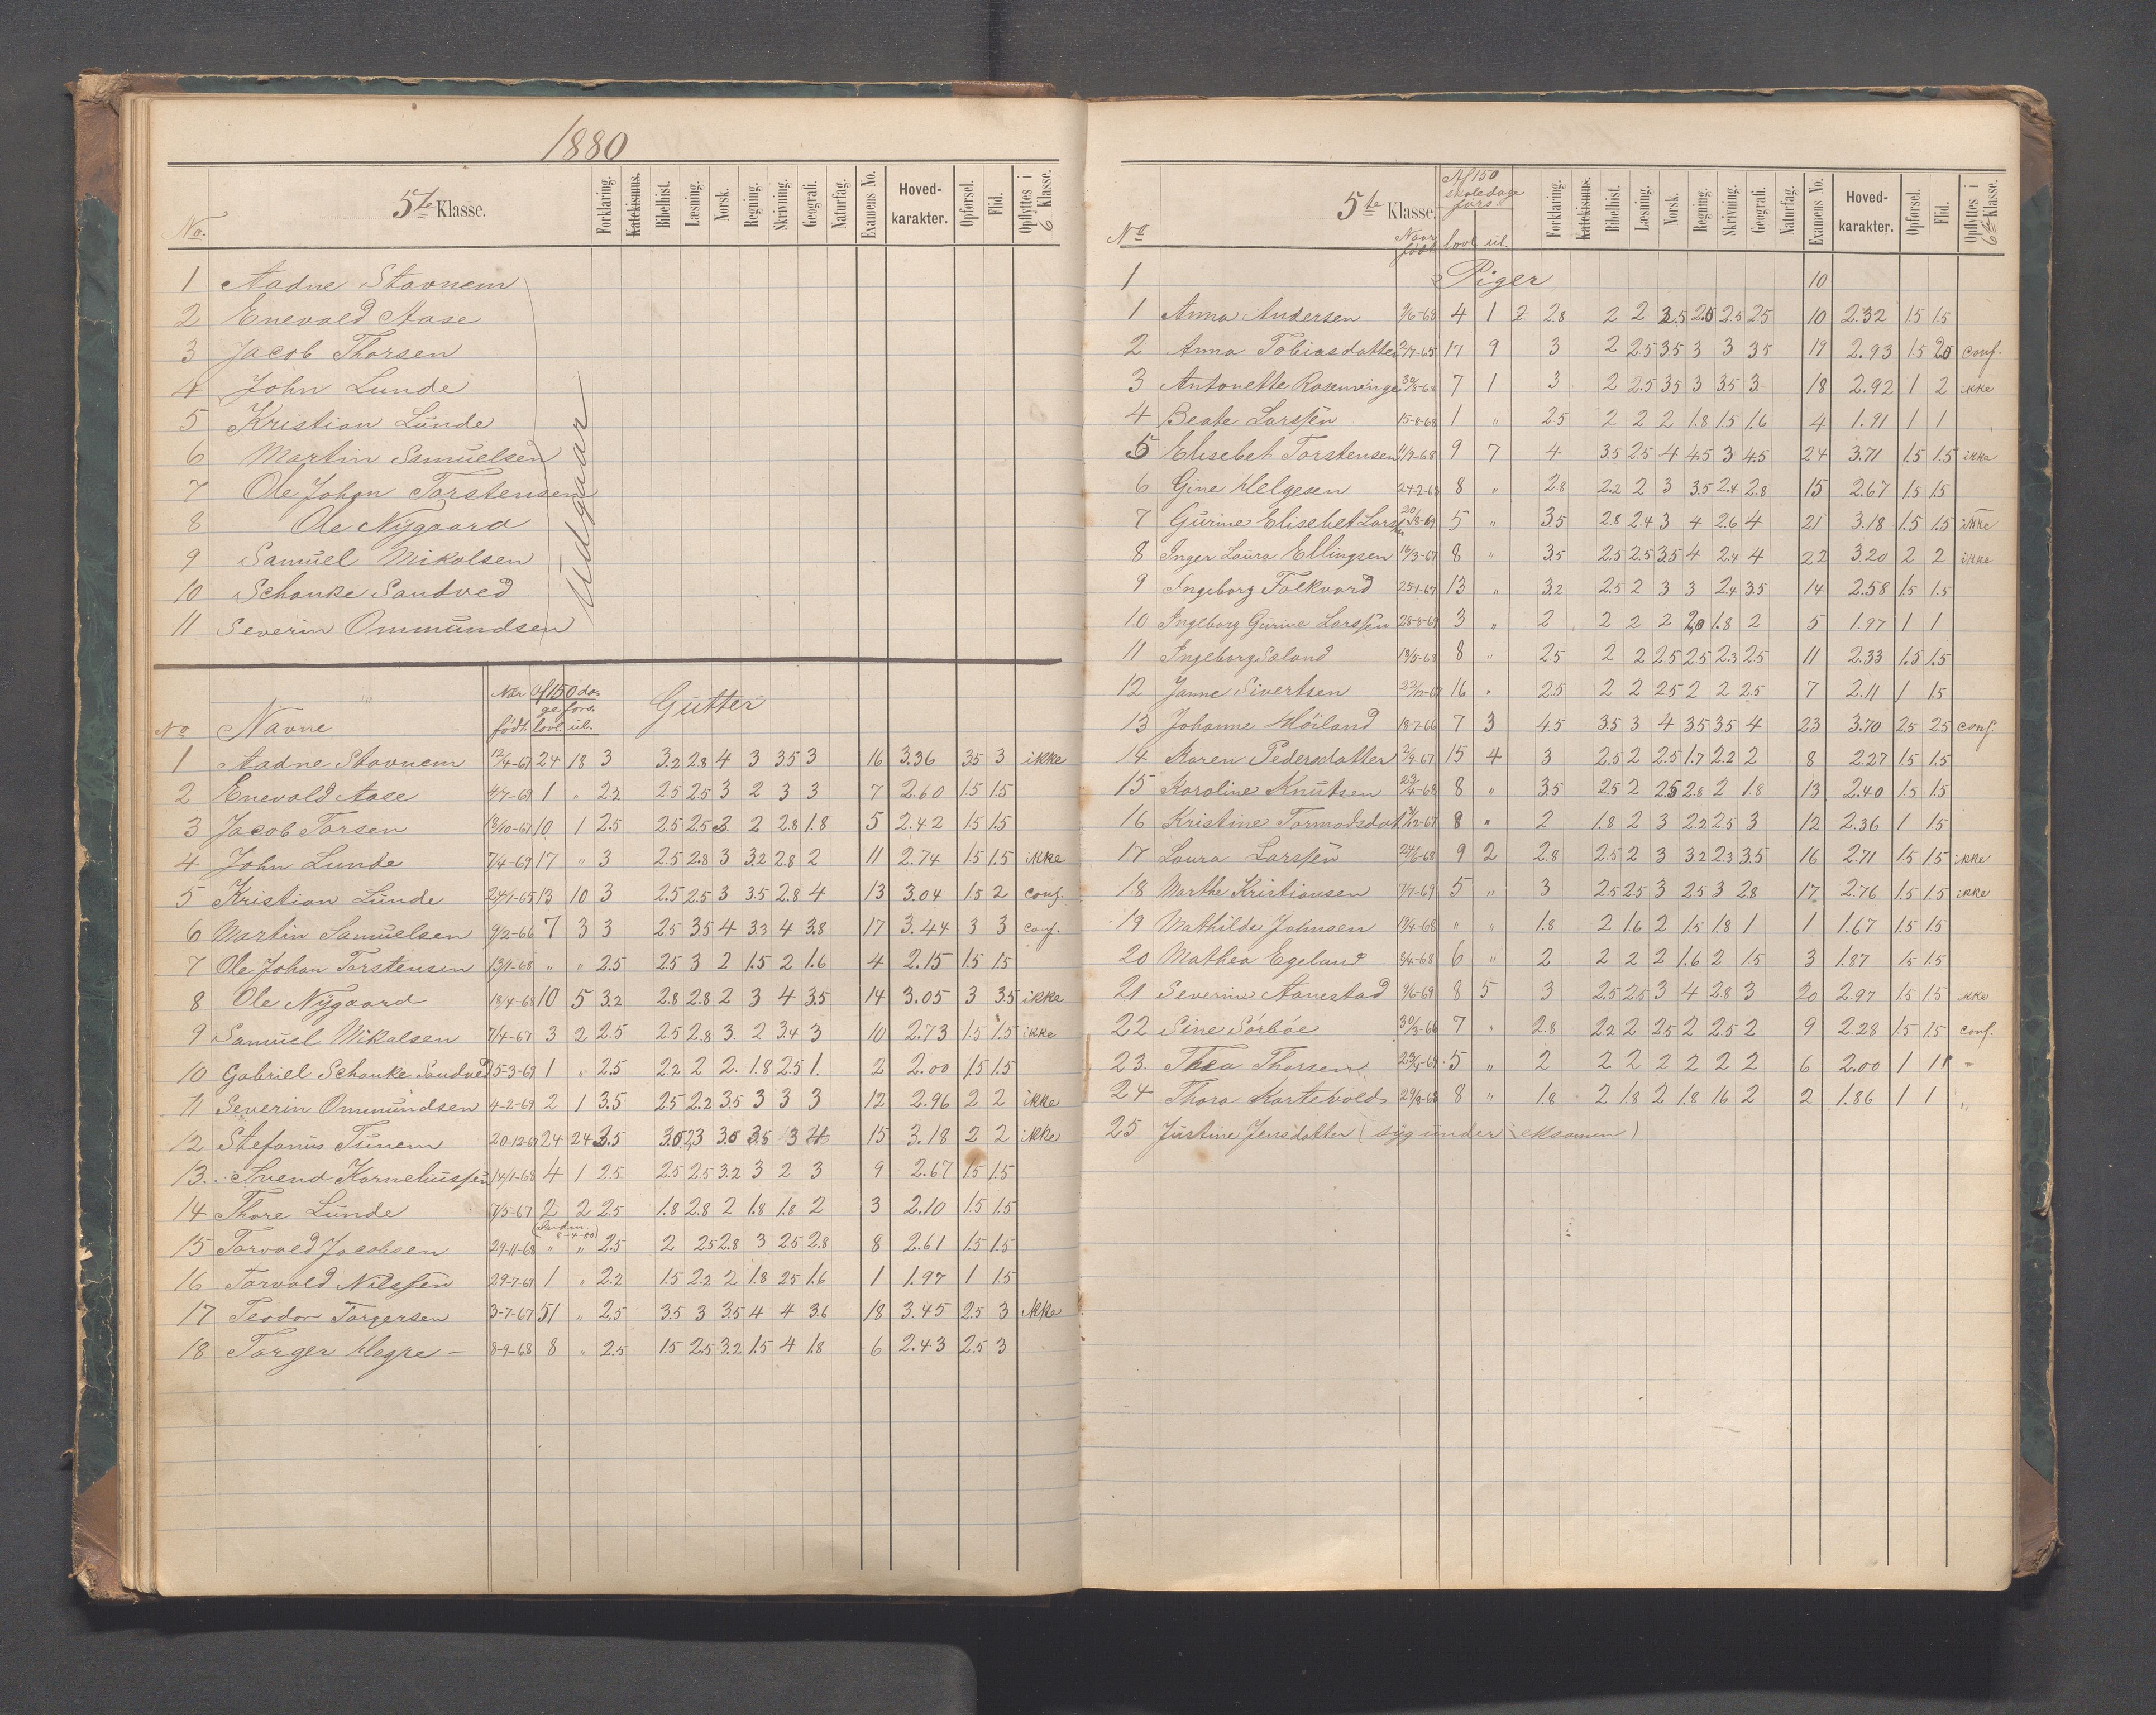 1880
No. 5te Klasse. Forklaring. Katekismus. Bibelhist. Læsning. Norsk. Regning. Skrivning. Geografi. Naturfag. Examens No. Hoved-karakter. Opførsel. Flid. Opflyttes i 6 Klasse.
1 Aadne Stavnem
2 Enevald Aase
3 Jacob Thorsen
4 John Lunde
5 Kristian Lunde
6 Martin Samuelsen
7 Ole Johan Torstensen
8 Ole Nygaard
9 Samuel Mikalsen
10 Schanke Sandved
11 Severin Ommundsen
Udgaar
No Navne Når født Af 150 dage fors. lovl. ul. Gutter
1 Aadne Stavnem 12/4-67 24 18 3 3.2 2.8 4 3 3.5 3 16 3.36 3.5 3 ikke
2 Enevald Aase 4/7-69 1 „ 2.2 2.5 2.5 3 2 3 3 7 2.60 1.5 1.5
3 Jacob Torsen 13/10-67 10 1 2.5 2.5 2.5 3 2 2.8 1.8 5 2.42 1.5 1.5
4 John Lunde 7/4-69 17 „ 3 2.5 2.8 3 3.2 2.8 2 11 2.74 1.5 1.5 ikke
5 Kristian Lunde 24/1-65 13 10 3 2.5 2.5 3 3.5 2.8 4 13 3.04 1.5 2 conf.
6 Martin Samuelsen 9/2-66 7 3 3 2.5 3.5 4 3.3 4 3.8 17 3.44 3 3 conf.
7 Ole Johan Torstensen 13/1-68 „ „ 2.5 2.5 3 2 1.5 2 1.6 4 2.15 1.5 1.5
8 Ole Nygaard 18/4-68 10 5 3.2 2.8 2.8 2 3 4 3.5 14 3.05 3 3.5 ikke
9 Samuel Mikalsen 7/4-67 3 2 2.5 2.5 2.8 3. 2 3.4 3 10 2.73 1.5 1.5 ikke
10 Gabriel Schanke Sandved 15-3-69 1 „ 2.5 2.2 2 2. 1.8 2.5 1. 2 2.00 1.5 1.5
11 Severin Ommundsen 4-2-69 2 1 3.5 2.5 2.2 3.5 3 3 3 12 2.96 2 2 ikke
12 Stefanus Tunem 20-12-67 24 24 3.5 3.0 2.3 3.0 3.5 3 4 15 3.18 2 2 ikke
13 Svend Korneliussen 14/1-68 4 1 2.5 2.5 2.5 3.2 3 2 3 9 2.67 1.5 1.5
14 Thore Lunde 9/5-67 2 2 2.5 1.8 2.8 2 1.8 1.8 2 3 2.10 1.5 1.5
15 Torvald Jacobsen 29-11-68 (Inden 8-4-80) „ „ 2.5 2 2.5 2.8 3 2.5 2.8 8 2.61 1.5 1.5
16 Torvald Nilssen 29-7-69 1 „ 2.2 1.5 2.2 2 1.8 2.5 1.6 1 1.97 1 1.5
17 Teodor Torgersen 3-7-67 51 „ 2.5 3.5 3 3.5 4 4 3.6 18 3.45 2.5 3 ikke
18 Torger Hegre - 8-9-68 8 „ 2.5 1.5 2.5 3.2 1.5 4 1.8 6 2.43 2.5 3
No 5te Klasse. Naar født Af 150 skoledage fors. lovl. ul. Forklaring. Katekismus. Bibelhist. Læsning. Norsk. Regning. Skrivning. Geografi. Naturfag. Examens No. Hoved-karakter. Opførsel. Flid. Opflyttes i 6te Klasse.
1 Piger 10
1 Anna Andersen 9/6-68 4 1 2 2.8 2 2 3.5 2.0 2.5 2.5 10 2.32 1.5 1.5
2 Anna Tobiasdatter 2/7-65 17 9 3 2 2.5 3.5 3 3 3.5 19 2.93 1.5 2.0 conf.
3 Antonette Rosenvinge 30/8-68 7 1 3 2 2.5 3.5 3 3.5 3 18 2.92 1 2 ikke
4 Beate Larssen 15-8-68 1 „ 2.5 2 2 2 1.8 1.5 1.6 4 1.91 1 1
5 Elisebet Torstensen 11/9-68 9 7 4 3.5 2.5 4 4.5 3 4.5 24 3.71 1.5 1.5 ikke
6 Gine Helgesen 24-2-68 8 „ 2.8 2.2 2 3 3.5 2.4 2.8 15 2.67 1.5 1.5
7 Gurine Elisebet Larssen 20/8-69 5 „ 3.5 2.8 2.4 3 4 2.6 4 21 3.18 1.5 1.5 ikke
8 Inger Laura Ellingsen 16/3-67 8 „ 3.5 2.5 2.5 3.5 4 2.4 4 22 3.20 2 2 ikke
9 Ingeborg Folkvord 25-1-67 13 „ 3.2 2.5 2 3 3 2.4 3.5 14 2.58 1.5 1.5
10 Ingeborg Gurine Larssen 28-8-69 3 „ 2 2 2 2 2.0 1.8 2 5 1.97 1 1
11 Ingeborg Søland 13/5-68 8 „ 2.5 2 2 2.5 2.5 2.3 2.5 11 2.33 1.5 1.5
12 Janne Sivertsen 22/12-67 16 „ 2.5 2 2 2.5 2 2 2.5 7 2.11 1 1.5
13 Johanne Høiland 18-7-66 7 3 4.5 3.5 3 4 3.5 3.5 4 23 3.70 2.5 2.5 conf.
14 Karen Pedersdatter 2/9-67 15 4 3 2.5 2 2.5 1.7 2.2 2 8 2.27 1.5 1.5
15 Karoline Knutsen 23/4-68 8 „ 3.5 2.5 2 2.5 2.8 2 1.8 13 2.40 1.5 1.5
16 Kristine Tormodsdat 8 „ 2 1.8 2 3 2.2 2.5 3 12 2.36 1 1.5
17 Laura Larssen 24/6-68 9 2 2.8 2.5 2 3 3.2 2.3 3.5 16 2.71 1.5 1.5 ikke
18 Marthe Kristiansen 7/7-69 5 „ 3 2.5 2.5 3 2.5 3 2.8 17 2.76 1.5 1.5 ikke
19 Mathilde Johnsen 19/4-68 „ „ 1.8 2 1.6 2 1.5 1.8 1 1 1.67 1.5 1.5
20 Mathea Egeland 8/4-68 6 „ 2 2 2 2 1.6 2 1.5 3 1.87 1.5 1.5
21 Severine Aanestad 9/6-69 8 5 3 2.5 2.5 3 4 2.8 3 20 2.97 1.5 1.5 ikke
22 Sine Sørbøe 30/3-66 7 „ 2.8 2.2 2 2.5 2 2.5 2 9 2.28 1.5 1.5 conf.
23. Thea Thorsen 5 „ 2 2 2 2 2 2 2 6 2.00 1 1
24 Thora Kartevold 29/8-68 8 „ 1.8 2 1.8 2 1.8 1.6 2 2 1.86 1 1 „
25 Justine Jensdatter (syg under eksamen)